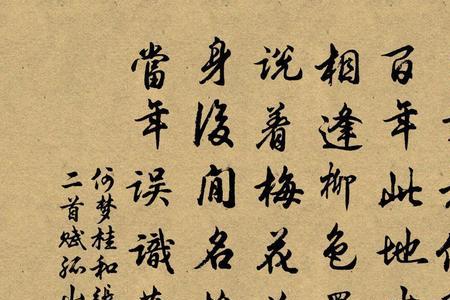 百年此地
相逢柳色
说着梅花
身後闲名
當年误識
何梦桂和張
二首赋孤山